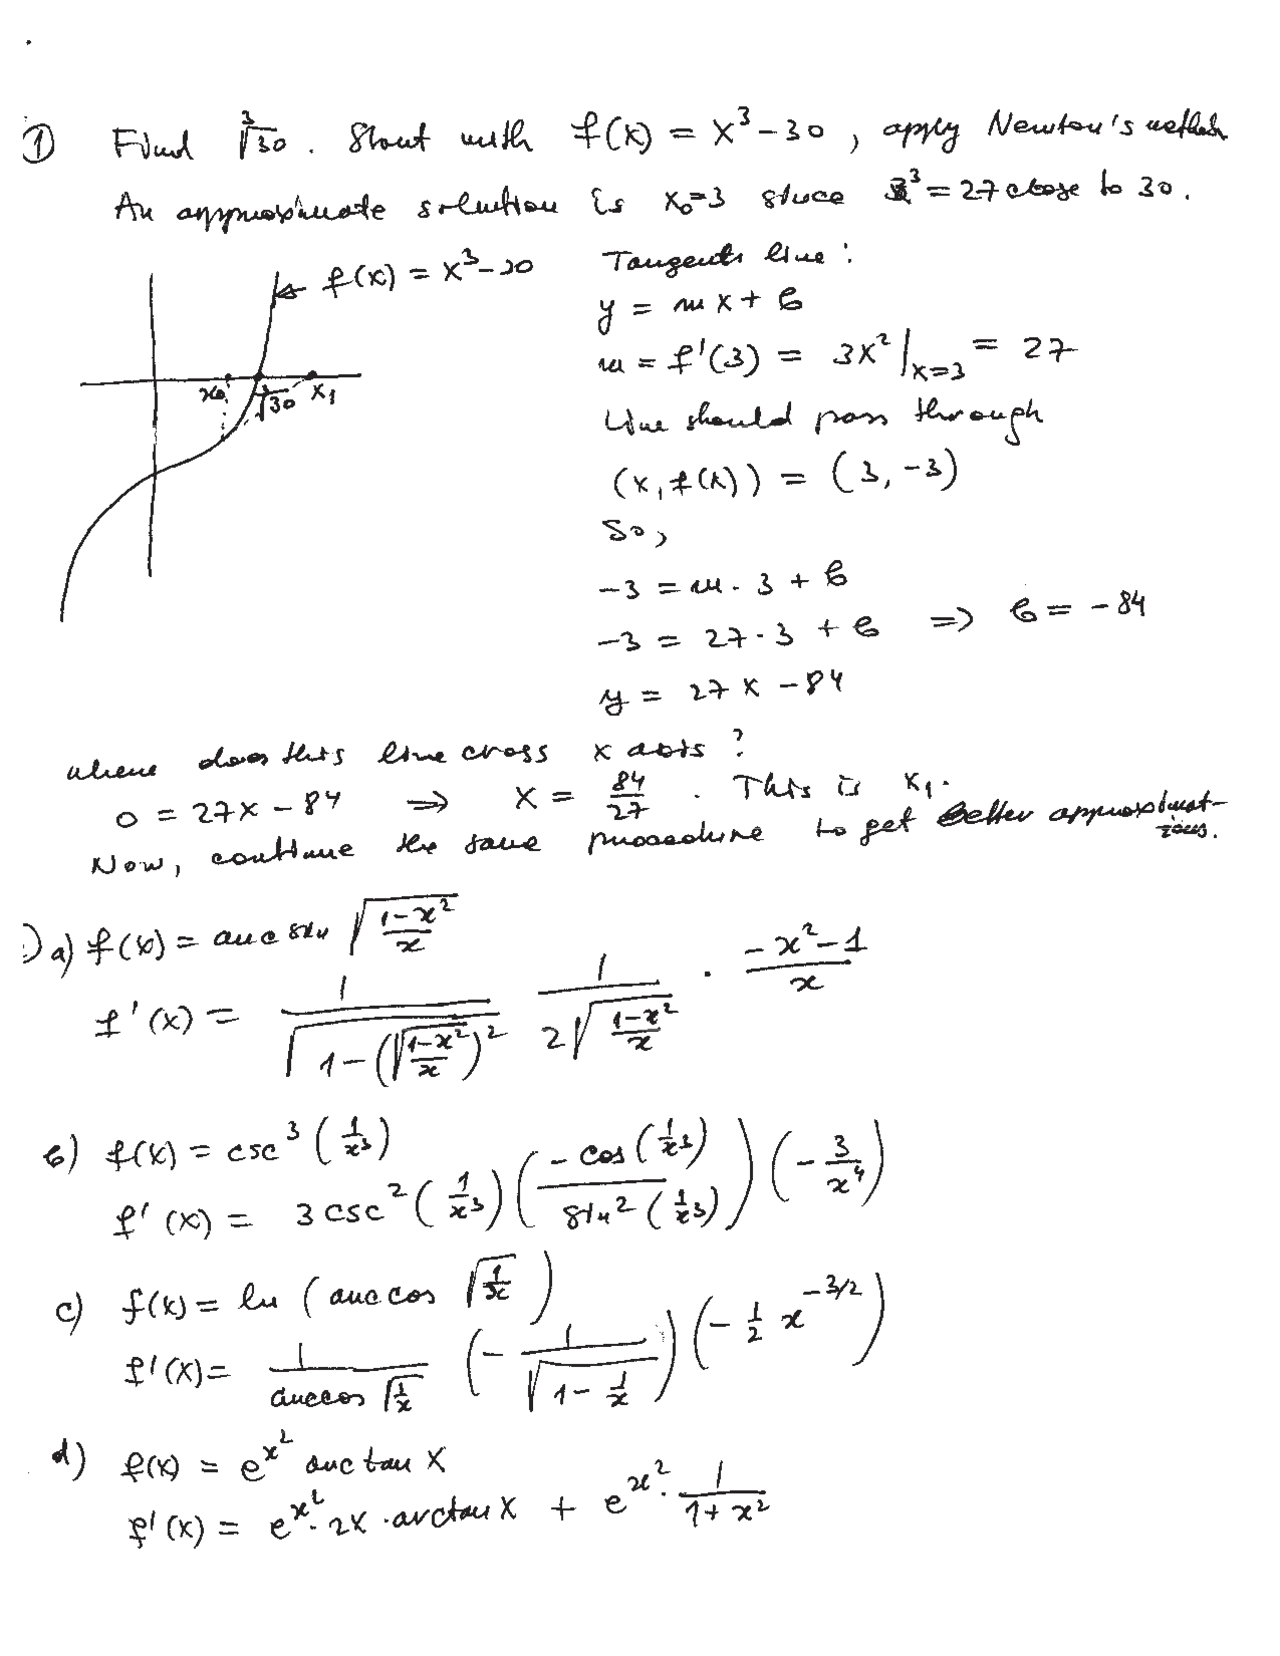 ① Find ∛30. Start with f(x) = x³-30, apply Newton's method
An approximate solution is x₀=3 since 3³=27 close to 30.
f(x) = x³-30
x₀ ∛30 x₁
Tangent line:
y = mx + b
m = f'(3) = 3x²|ₓ₌₃ = 27
Line should pass through
(x, f(x)) = (3, -3)
So,
-3 = m · 3 + b
-3 = 27 · 3 + b ⇒ b = -84
y = 27x - 84
where does this line cross x axis?
0 = 27x - 84 ⇒ x = 84/27 . This is x₁.
Now, continue the same procedure to get better approximat-
ions.
) a) f(x) = arcsin √((1-x²)/x)
f'(x) = 1/√(1-(√((1-x²)/x))²) 1/(2√((1-x²)/x)) · (-x²-1)/x
b) f(x) = csc³(1/x³)
f'(x) = 3csc²(1/x³) (-cos(1/x³)/sin²(1/x³)) (-3/x⁴)
c) f(x) = ln (arccos √(1/x))
f'(x) = 1/(arccos √(1/x)) (-1/√(1-1/x)) (-1/2 x^(-3/2))
d) f(x) = e^(x²) arctan x
f'(x) = e^(x²) · 2x · arctan x + e^(x²) · 1/(1+x²)